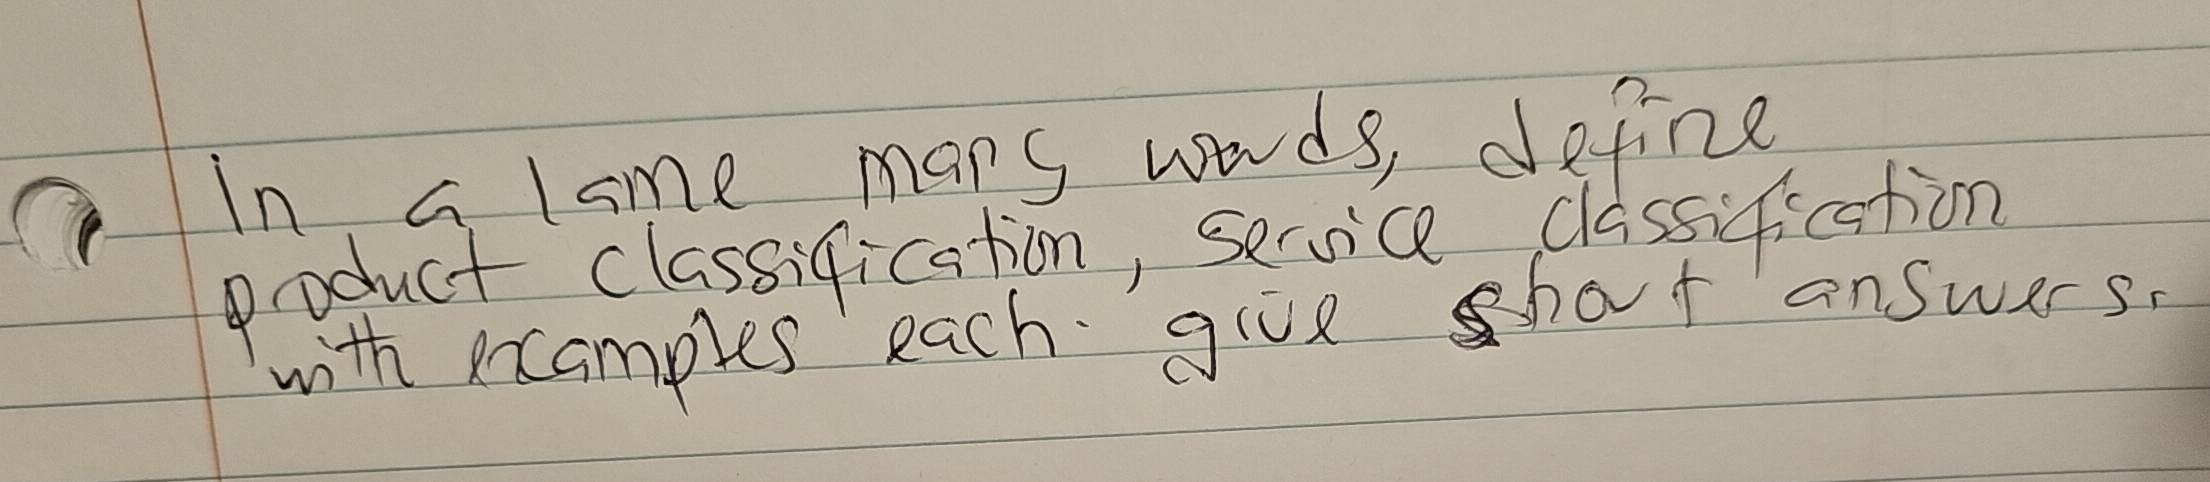 in a lame mans words, define
product classification, service classification
with examples each. give short answers.